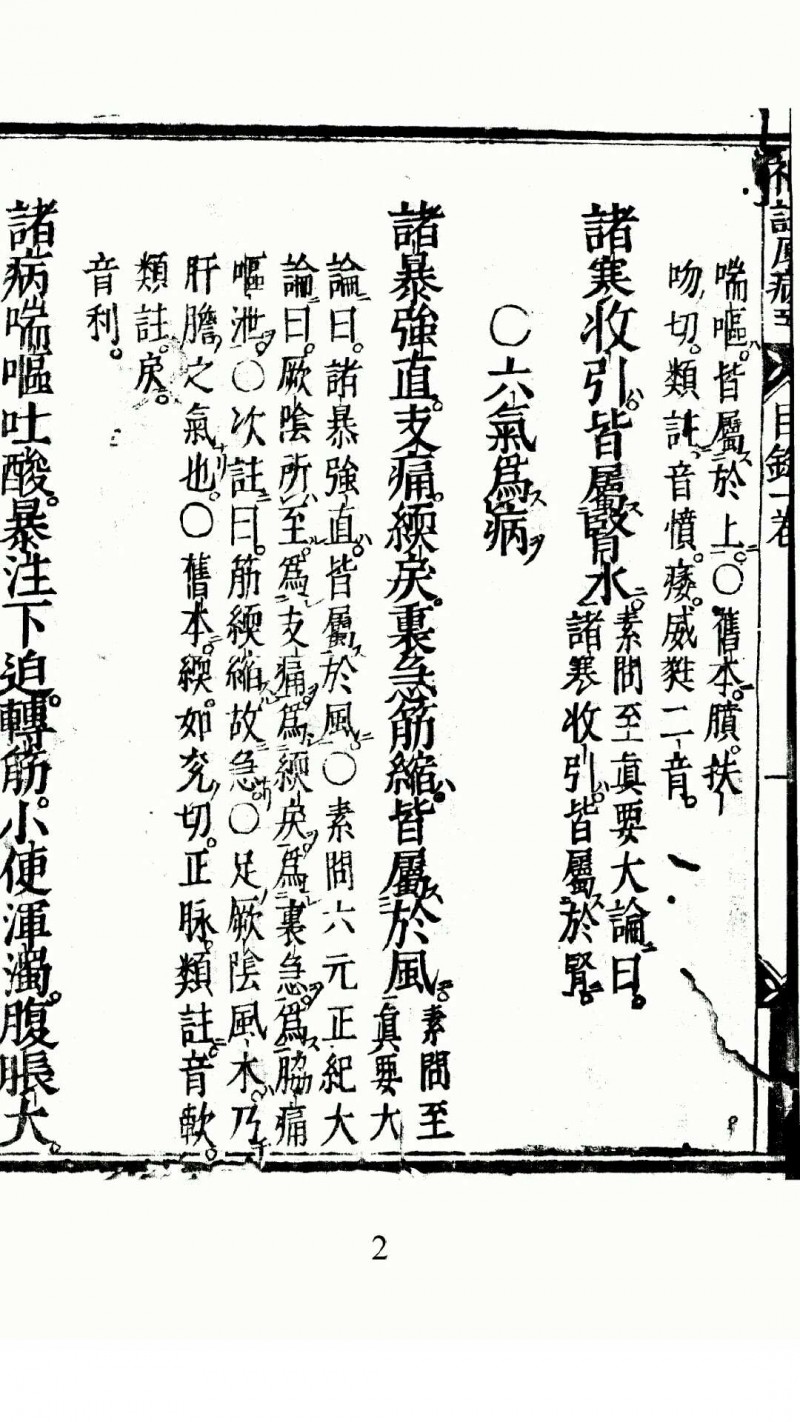 補註原病式 目錄一卷 一
喘嘔。皆屬於上。○舊本。膹。扶
吻切。類註。音憤。痿。威蕤二音。
諸寒收引。皆屬腎水。素問至眞要大論曰。
諸寒收引。皆屬於腎。
○六氣爲病
諸暴強直。支痛。緛戾。裏急筋縮。皆屬於風。素問至
眞要大
論曰。諸暴強直。皆屬於風○素問六元正紀大
論曰。厥陰所至。爲支痛。爲緛戾。爲裏急。爲脇痛
嘔泄。○次註曰。筋緛縮故急○足厥陰風木。乃
肝膽之氣也。○舊本。緛。如兖切。正脉。類註音軟。
類註。戾。
音利。
諸病喘嘔吐酸。暴注下迫。轉筋。小便渾濁。腹脹大。
2